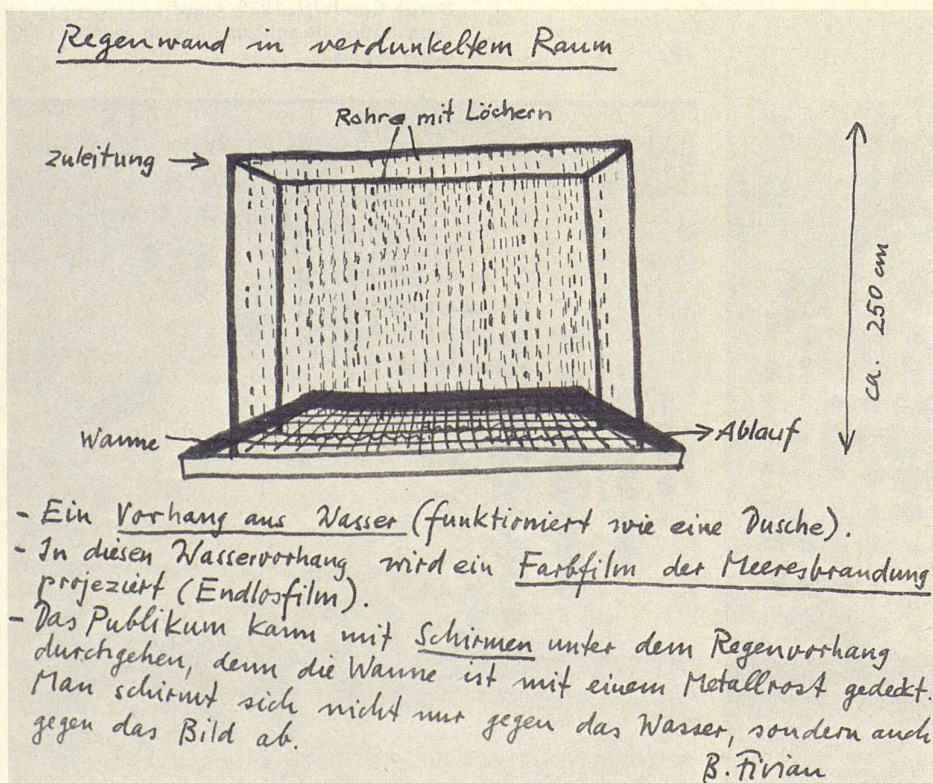 Regenwand in verdunkeltem Raum
Rohre mit Löchern
Zuleitung →
ca. 250 cm
Wanne
Ablauf
- Ein Vorhang aus Wasser (funktioniert wie eine Dusche).
- In diesen Wasservorhang wird ein Farbfilm der Meeresbrandung
projeziert (Endlosfilm).
- Das Publikum kann mit Schirmen unter dem Regenvorhang
durchgehen, denn die Wanne ist mit einem Metallrost gedeckt.
Man schirmt sich nicht nur gegen das Wasser, sondern auch
gegen das Bild ab.
B. Fivian